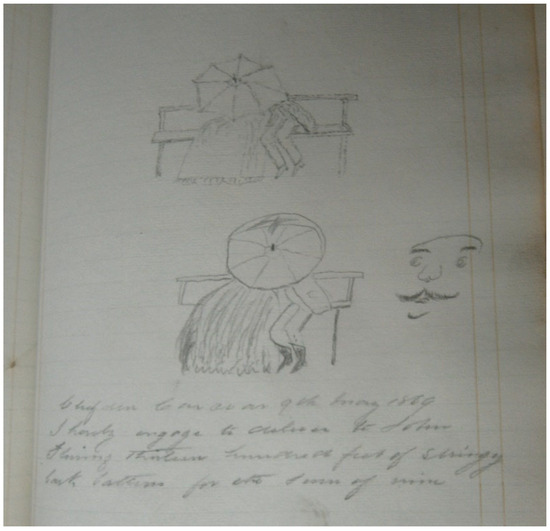 9th May 1869
I hereby engage to deliver to John
thirteen hundred feet of stringy
bark battens for the sum of nine